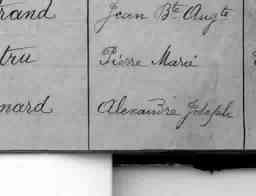 rand Jean Bte Augte
tru Pierre Marie
nard Alexandre Joseph